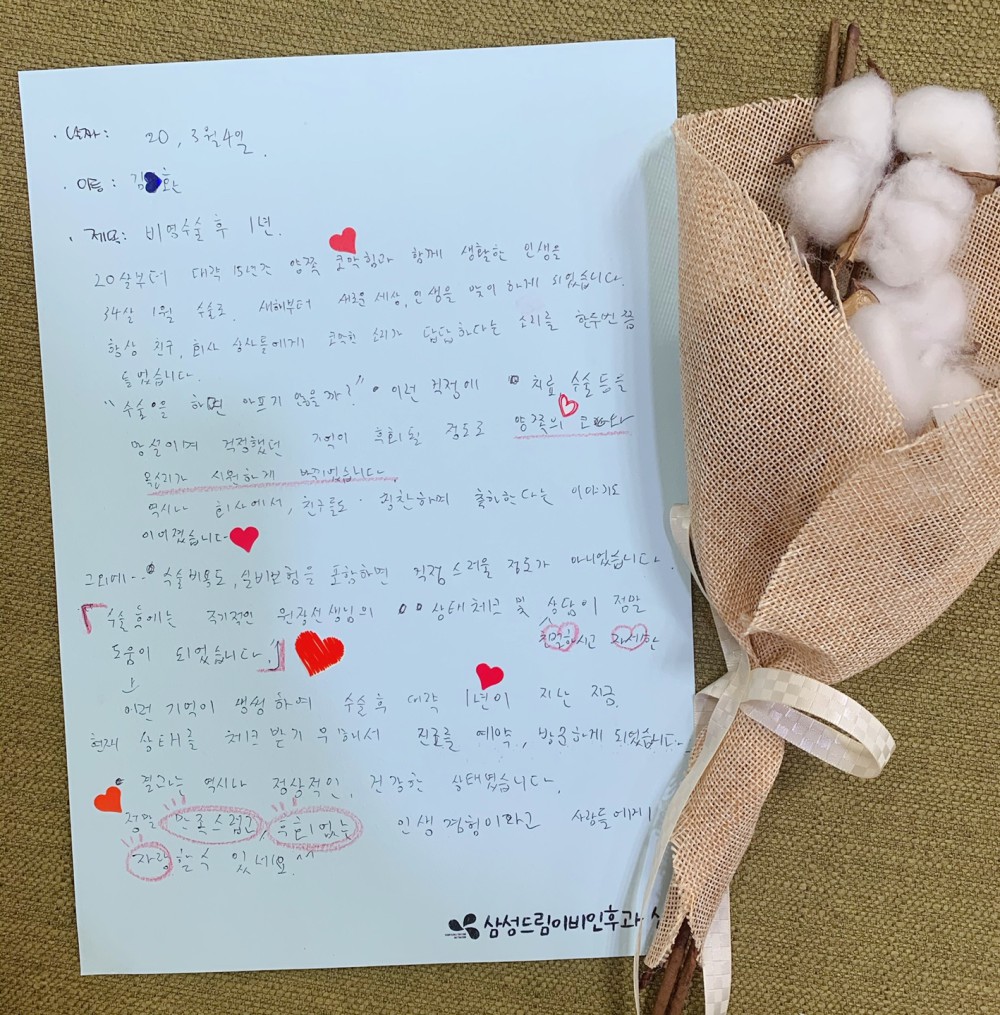 · 날짜: 20, 3월 4일.
· 이름: 김 환
· 제목: 비염수술 후 1년.
20살부터 대략 15년간 양쪽 코막힘과 함께 생활한 인생을
34살 1월 수술로, 새해부터 새로운 세상, 인생을 맞이 하게 되었습니다.
항상 친구, 회사 상사들에게 코막힌 소리가 답답하다는 소리를 한두번 쯤
들었습니다.
"수술을 하면 아프기 않을까?" 이런 걱정에 치료 수술등을
망설이며 걱정했던 기억이 후회될 정도로 양쪽의
목소리가 시원하게 바뀌었습니다
역시나 회사에서, 친구들도 칭찬하며 출하한다는 이야기도
이어졌습니다
그외에·· 수술비용도, 실비보험을 포함하면 걱정 스러울 정도가 아니었습니다.
「수술 후에는 주기적인 원장선생님의 상태체크 및 상담이 정말
친절하시고 자세한
도움이 되었습니다.」
이런 기억이 생생하여 수술후 대략 1년이 지난 지금.
현재 상태를 체크 받기 위해서 진료를 예약, 방문하게 되었습니다.
결과는 역시나 정상적인, 건강한 상태였습니다.
정말 만족스럽고, 후회없는 인생경험이라고 사람들에게
자랑할 수 있네요 ^^
삼성드림이비인후과